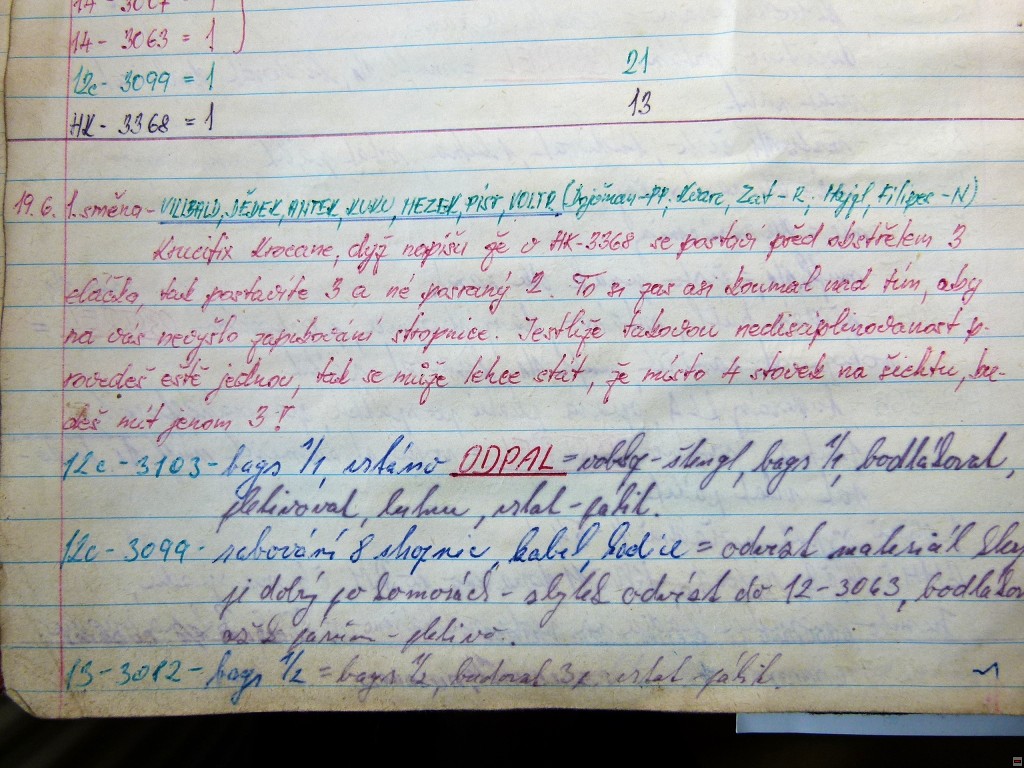 14-3007 = 1
14-3063 = 1
12c-3099 = 1 21
HK-3368 = 1 13
19.6. 1. směna - VILIBALD, DĚDEK, ANTEK, KUKU, MEZEK, PÍST, VOLTR ( -PP, Zat-R, Hajgl, Filipec-N)
Krucifix krocane, dyž napíšu že v HK-3368 se postaví před obstřelem 3
čláčka, tak postavíte 3 a né posraný 2. To si zas asi koumal nad tím, aby
na vás nevyšlo zapikování stropnice. Jestliže takovou nedisciplinovanost p-
rovedeš eště jednou, tak se může lehce stát, že místo 4 stovek na šichtu, bu-
deš mít jenom 3!
12c-3103- bags 1/1, vrtáno ODPAL = - štengl, bags 1/1, bodlákovat,
pletivovat, lutnu, vrtat-pálit.
12c-3099- rabování 8 stojnic, kabel, hadice = odvézt materiál
je dobrý po komorách - zbytek odvézt do 12-3063,
- pletivo.
13-3012- bags 1/2 = bags 1/2, budovat 3x vrtat-pálit.